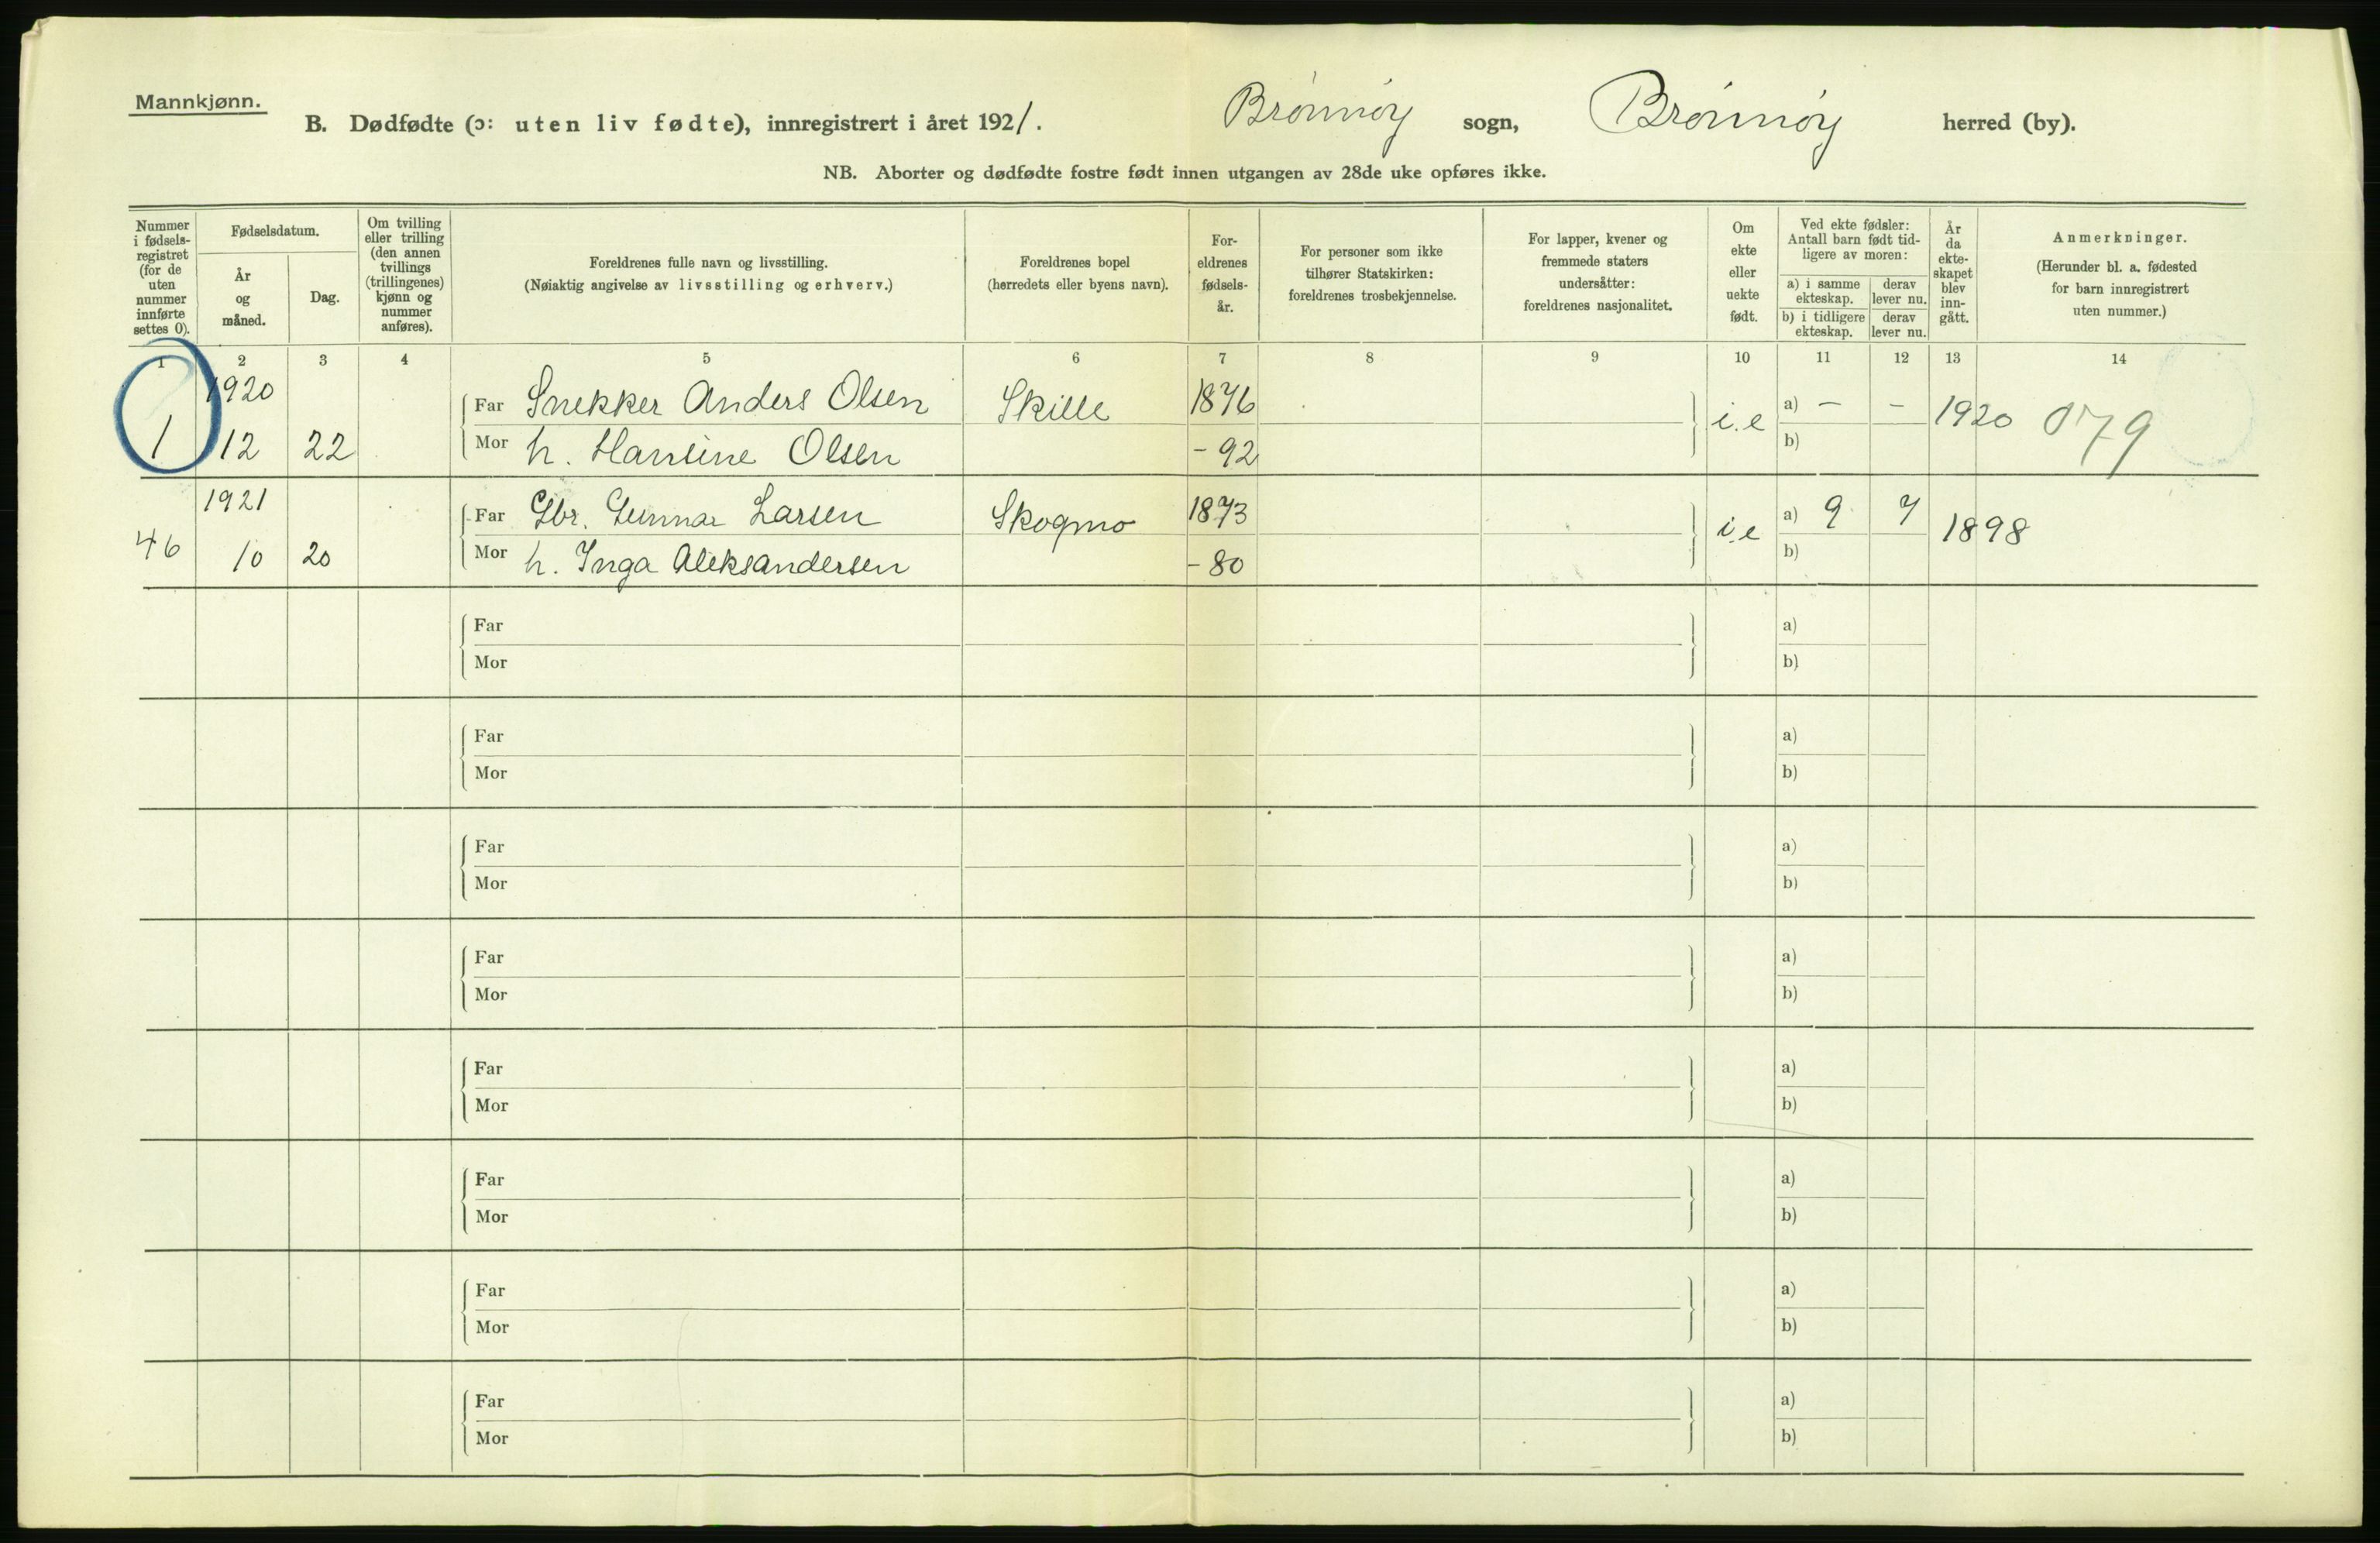 Mannkjønn.
B. Dødfødte (ɔ: uten liv fødte), innregistrert i året 1921. Brønnøy sogn, Brønnøy herred (by).
NB. Aborter og dødfødte fostre født innen utgangen av 28de uke opføres ikke.
Nummer i fødsels-registret (for de uten nummer innførte settes 0).
Fødselsdatum.
År og måned.
Dag.
Om tvilling eller trilling (den annen tvillings (trillingenes) kjønn og nummer anføres).
Foreldrenes fulle navn og livsstilling.
(Nøiaktig angivelse av livsstilling og erhverv.)
Foreldrenes bopel
(herredets eller byens navn).
For-eldrenes fødsels-år.
For personer som ikke tilhører Statskirken: foreldrenes trosbekjennelse.
For lapper, kvener og fremmede staters undersåtter: foreldrenes nasjonalitet.
Om ekte eller uekte født.
Ved ekte fødsler: Antall barn født tid-ligere av moren:
a) i samme ekteskap.
derav lever nu.
b) i tidligere ekteskap.
derav lever nu.
År da ekte-skapet blev inn-gått.
Anmerkninger.
(Herunder bl. a. fødested for barn innregistrert uten nummer.)
1 2 3 4 5 6 7 8 9 10 11 12 13 14
1920
Far Snekker Anders Olsen Skille 1876 i.e a) - - 1920 079
1 12 22 Mor h. Hansine Olsen - 92 b)
1921
Far Gbr. Gunnar Larsen Skogmo 1873 i.e a) 9 7 1898
46 10 20 Mor h. Inga Aleksandersen - 80 b)
Far a)
Mor b)
Far a)
Mor b)
Far a)
Mor b)
Far a)
Mor b)
Far a)
Mor b)
Far a)
Mor b)
Far a)
Mor b)
Far a)
Mor b)